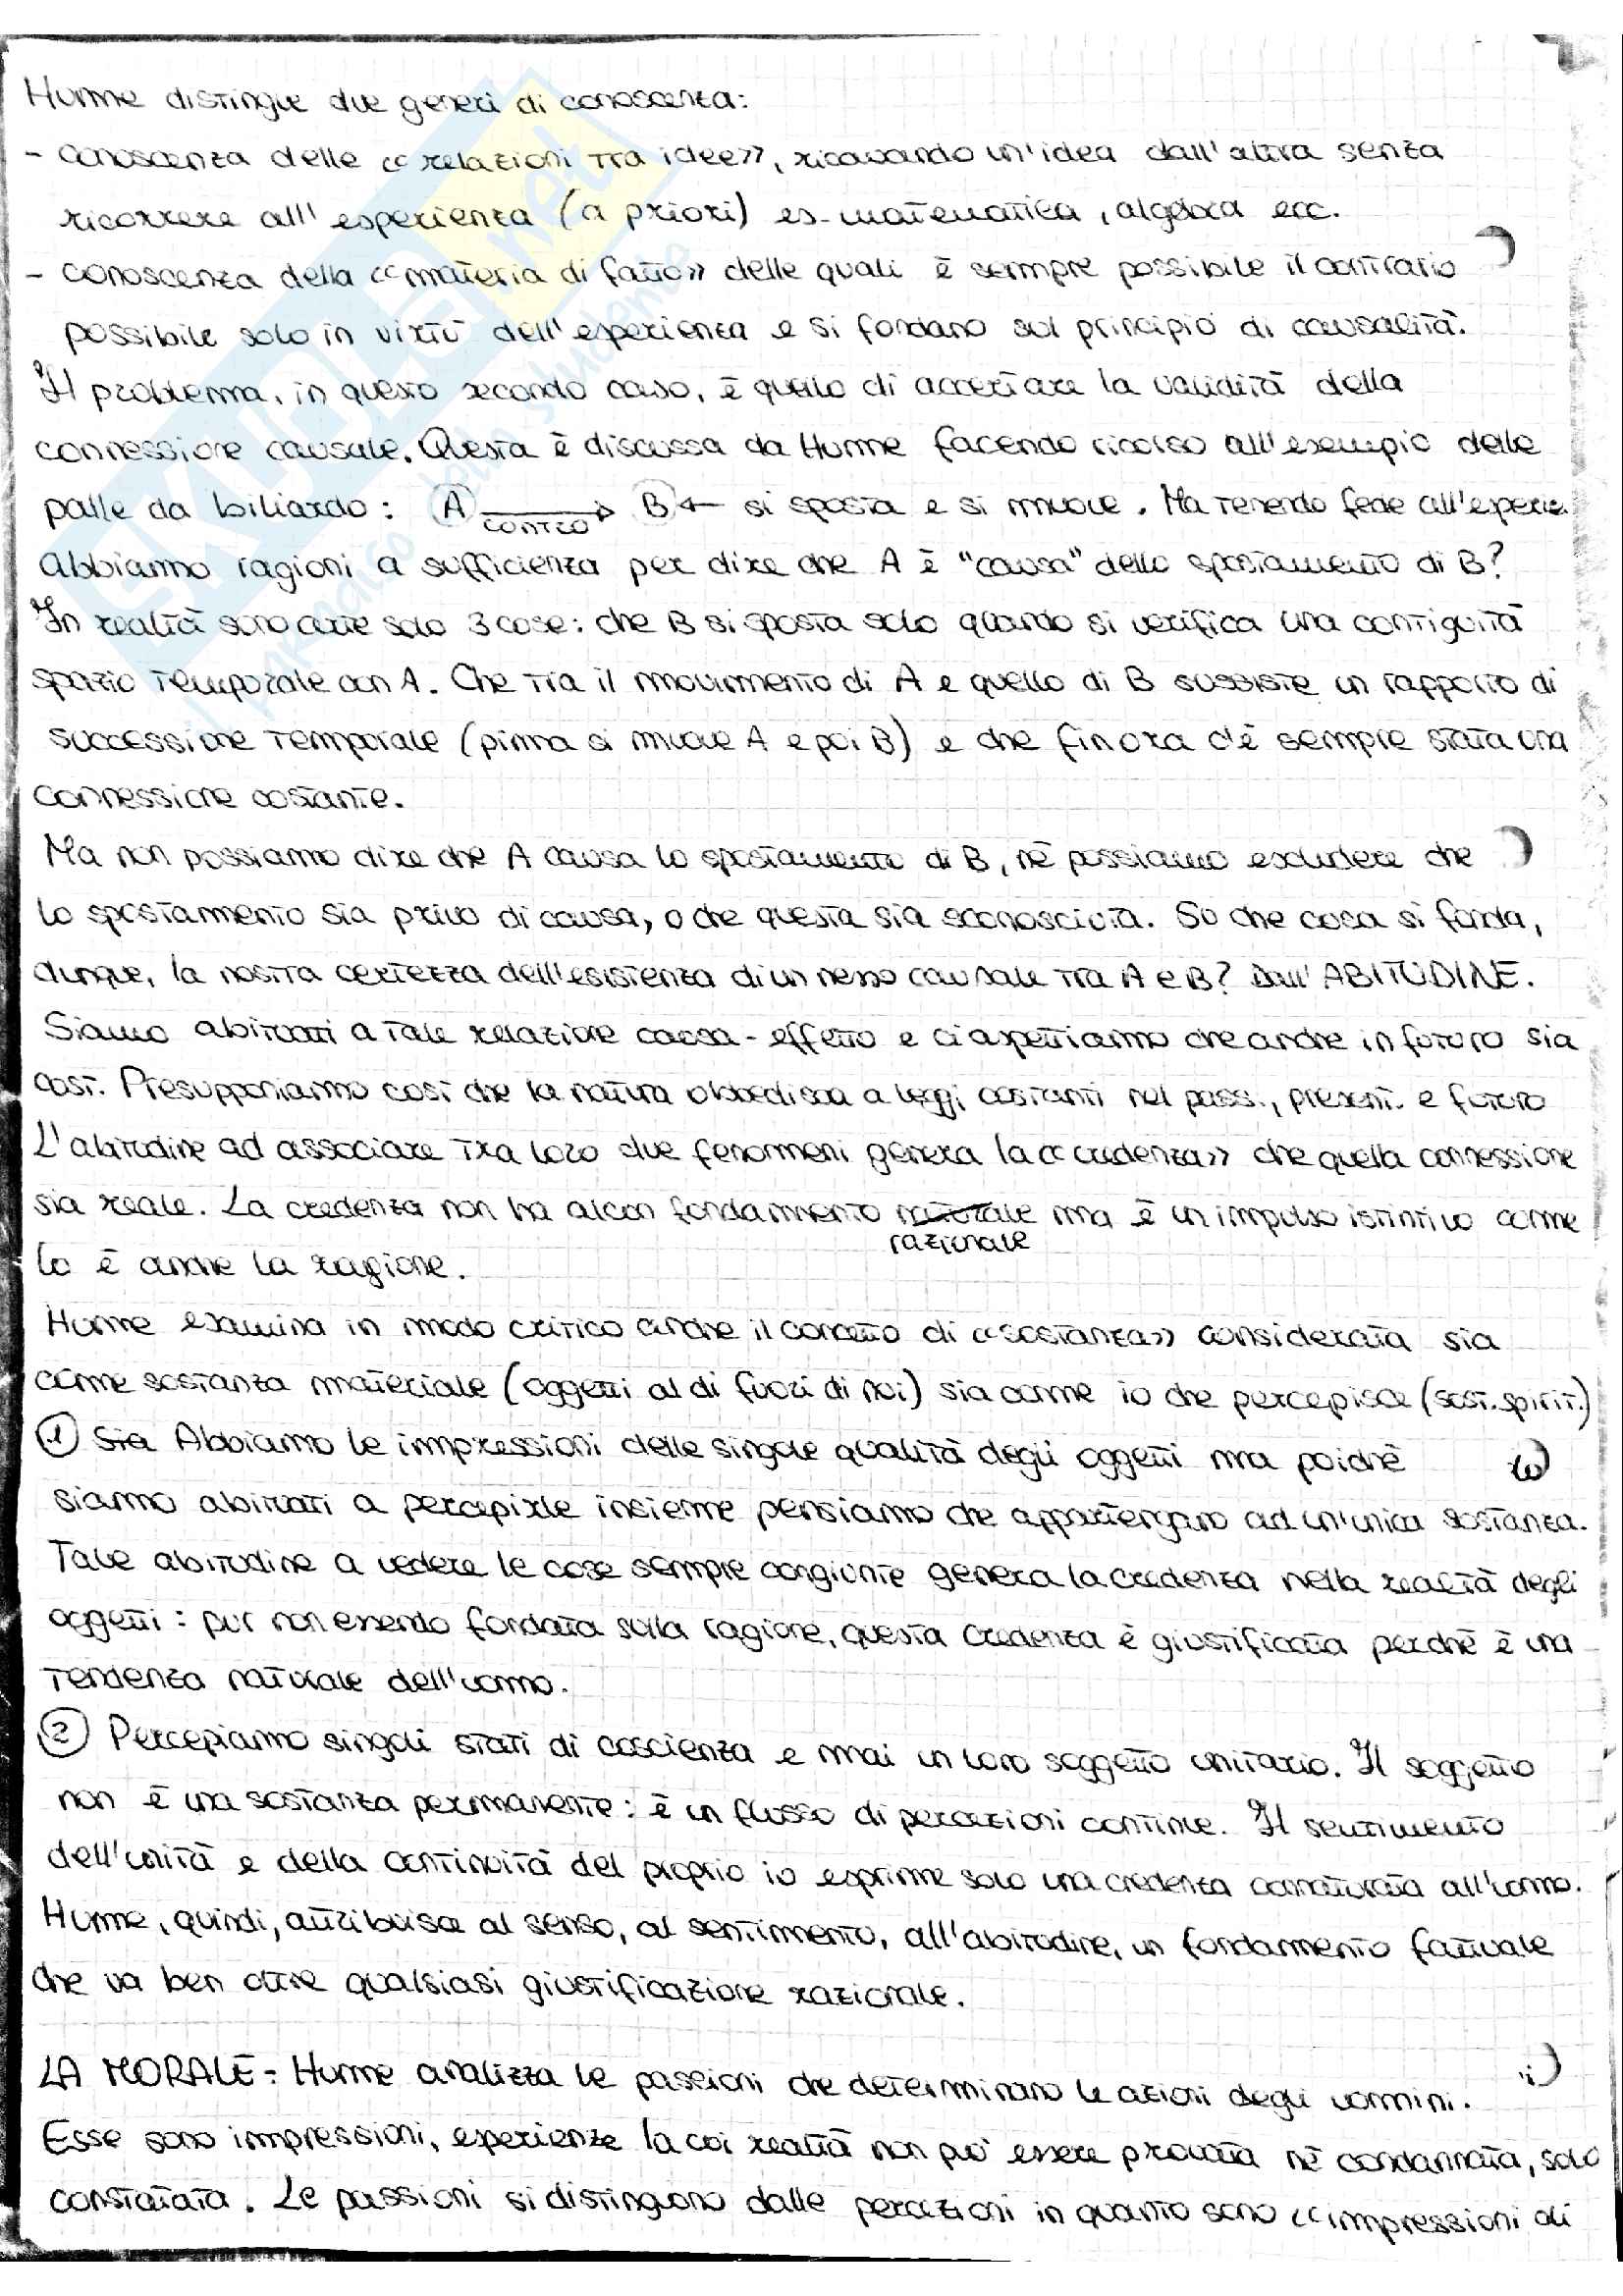 Hume distingue due generi di conoscenza:
- conoscenza delle «relazioni tra idee», ricavando un'idea dall'altra senza
ricorrere all'esperienza (a priori) es- matematica, algebra ecc.
- conoscenza della «materia di fatto» delle quali è sempre possibile il contrario
possibile solo in virtù dell'esperienza e si fondano sul principio di causalità.
Il problema, in questo secondo caso, è quello di accertare la validità della
connessione causale. Questa è discussa da Hume facendo ricorso all'esempio delle
palle da biliardo: A → B ← si sposta e si muove. Ma tenendo fede all'esperie.
contro
Abbiamo ragioni a sufficienza per dire che A è "causa" dello spostamento di B?
In realtà sono certe solo 3 cose: che B si sposta solo quando si verifica una contiguità
spazio temporale con A. Che tra il movimento di A e quello di B sussiste un rapporto di
successione temporale (prima si muove A e poi B) e che finora c'è sempre stata una
connessione costante.
Ma non possiamo dire che A causa lo spostamento di B, nè possiamo escludere che
lo spostamento sia privo di causa, o che questa sia sconosciuta. Su che cosa si fonda,
dunque, la nostra certezza dell'esistenza di un nesso causale tra A e B? Dall'ABITUDINE.
Siamo abituati a tale relazione causa-effetto e ci aspettiamo che anche in futuro sia
così. Presupponiamo così che la natura obbedisca a leggi costanti nel pass., present. e futuro
L'abitudine ad associare tra loro due fenomeni genera la «credenza» che quella connessione
sia reale. La credenza non ha alcun fondamento naturale ma è un impulso istintivo come
razionale
lo è anche la ragione.
Hume esamina in modo critico anche il concetto di «sostanza» considerata sia
come sostanza materiale (oggetti al di fuori di noi) sia come io che percepisce (sost. spirit.)
1 Sia Abbiamo le impressioni delle singole qualità degli oggetti ma poichè
siamo abituati a percepirle insieme pensiamo che appartengano ad un'unica sostanza.
Tale abitudine a vedere le cose sempre congiunte genera la credenza nella realtà degli
oggetti: pur non essendo fondata sulla ragione, questa credenza è giustificata perchè è una
tendenza naturale dell'uomo.
2 Percepiamo singoli stati di coscienza e mai un loro soggetto unitario. Il soggetto
non è una sostanza permanente: è un flusso di percezioni continue. Il sentimento
dell'unità e della continuità del proprio io esprime solo una credenza connaturata all'uomo.
Hume, quindi, attribuisce al senso, al sentimento, all'abitudine, un fondamento fattuale
che va ben oltre qualsiasi giustificazione razionale.
LA MORALE- Hume analizza le passioni che determinano le azioni degli uomini.
Esse sono impressioni, esperienze la cui realtà non può essere provata nè condannata, solo
constatata. Le passioni si distinguono dalle percezioni in quanto sono «impressioni di